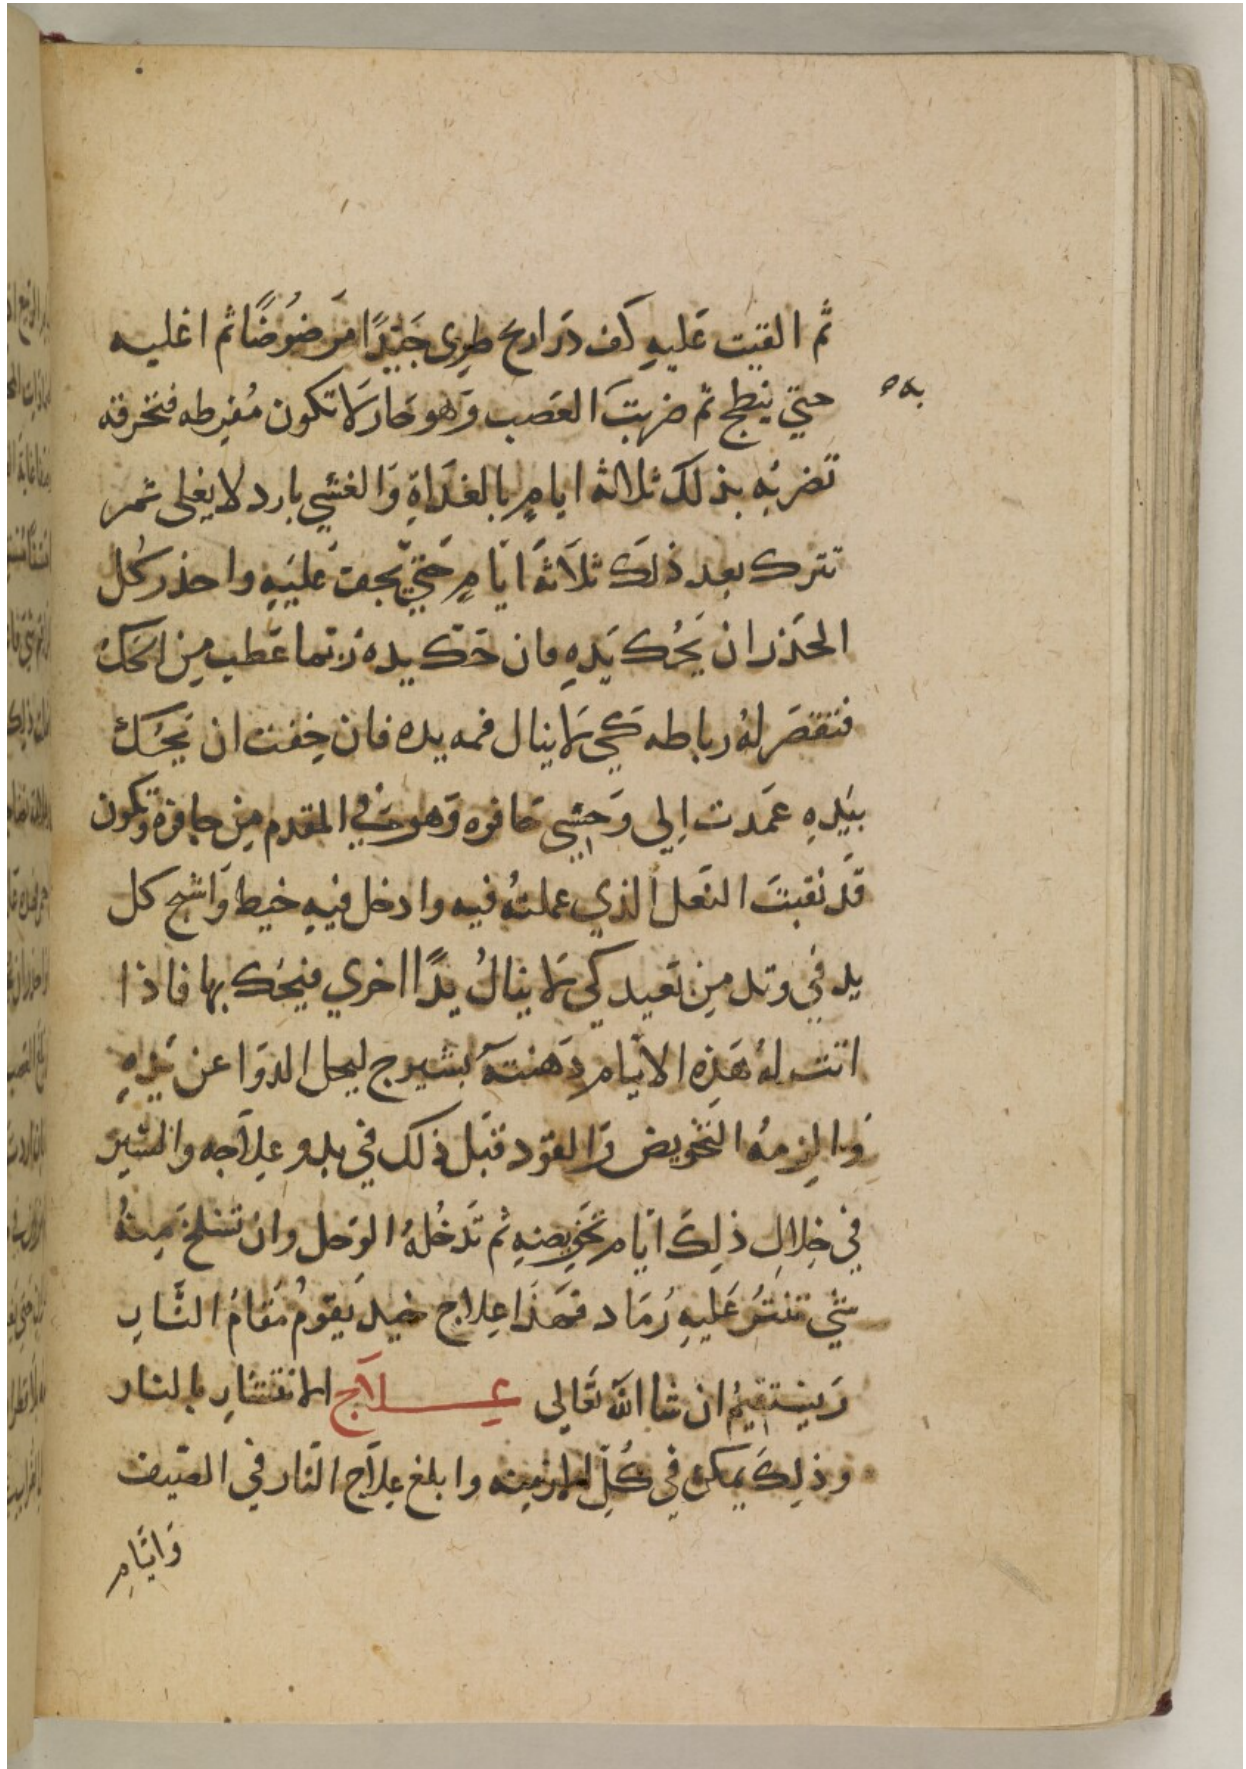 ثم القيت عَليهِ كَف ذرَاريح طِرِي جَيّدًا مَرضُوضًا ثم اغليه
به
حتي ينطبخ ثم ضربتَ العَصب وَهو حَار وَلا تكون مُفرطه فتحرقه
تَضربُه بذلك ثلاثه ايامٍ بالغدَاةِ وَالعَشي بارد لا يغلى ثمر
تترك بعد ذلكَ ثلاَثةَ ايَامٍ حَتيّ يجف عَليَهِ واحذر كُل
الحَذر ان يَحُك يَدهِ فان حَكّ يده رُبّما عَطِب مِن الحَكّ
فتقصَر لهُ رباطه كَي لا ينال فمه يده فان خِفت ان يَحُكّ
بيَدهِ عَمَدت اِلى وَحشي حَافره وَهو في المقدم مِن حافرة وَتكون
قَد نقبتَ النَعل الذي عملتهُ فيه وادخل فيهِ خيط وَاشبح كل
يد في وتد مِن بَعيد كي لا ينالُ يدًا اخري فيَحُك بها فاذا
اتت لهُ هَذِه الايَام دَهنتهَ بشيرج ليحل الدوَا عن يَدهِ
وَالزمهُ التَخويض وَالقَود قبَل ذلك في بدو عِلاَجه والمشير
في خِلالِ ذلِكَ ايَام تخَوِيضهِ ثم تَدخُلهُ الوَحل وان تسَلخَ مِنهُ
شي تنثرُ عَليهِ رُمَاد فهَذَا عِلاج جَيد يَقومُ مَقامُ النَّار
وَيسَتقيمُ ان شا الله تعَالى عِــلاَج الانتشار بالنار
وذلِكَ يمكن في كُلِّ الازمِنه وابلغ عِلاَج النَّار في الصَيف
وَايَّامِ